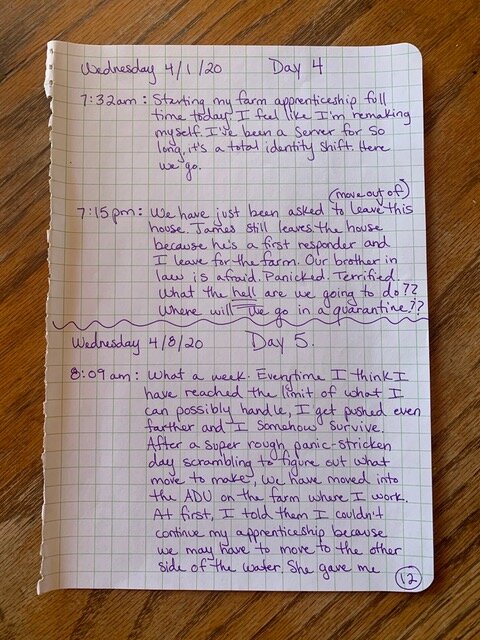 Wednesday 4/1/20 Day 4
7:32am: Starting my farm apprenticeship full
time today. I feel like I'm remaking
myself. I've been a server for so
long, it's a total identity shift. Here
we go.
(move out of)
7:15pm: We have just been asked to leave this
house. James still leaves the house
because he's a first responder and
I leave for the farm. Our brother in
law is afraid. Panicked. Terrified.
What the hell are we going to do??
Where will we go in a quarantine??
Wednesday 4/8/20 Day 5.
8:09am: What a week. Everytime I think I
have reached the limit of what I
can possibly handle, I get pushed even
farther and I somehow survive.
After a super rough, panic-stricken
day scrambling to figure out what
move to make, we have moved into
the ADU on the farm where I work.
At first, I told them I couldn't
continue my apprenticeship because
we may have to move to the other
side of the water. She gave me
12